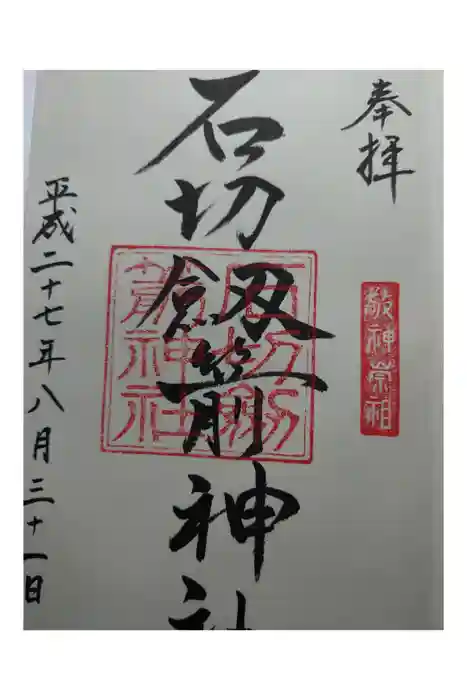 奉拝
敬神崇祖
石切劔箭神社
石切劔
箭神社
平成二十七年八月三十一日